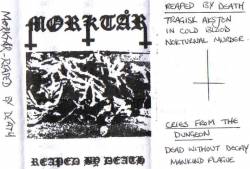 MORKTÅR - REAPED BY DEATH
MORKTÅR
REAPED BY DEATH
REAPED BY DEATH
TRAGISK
IN COLD BLOOD
NOKTURNAL MURDER
CRIES FROM THE
DUNGEON
DEAD WITHOUT DECAY
MANKIND PLAGUE